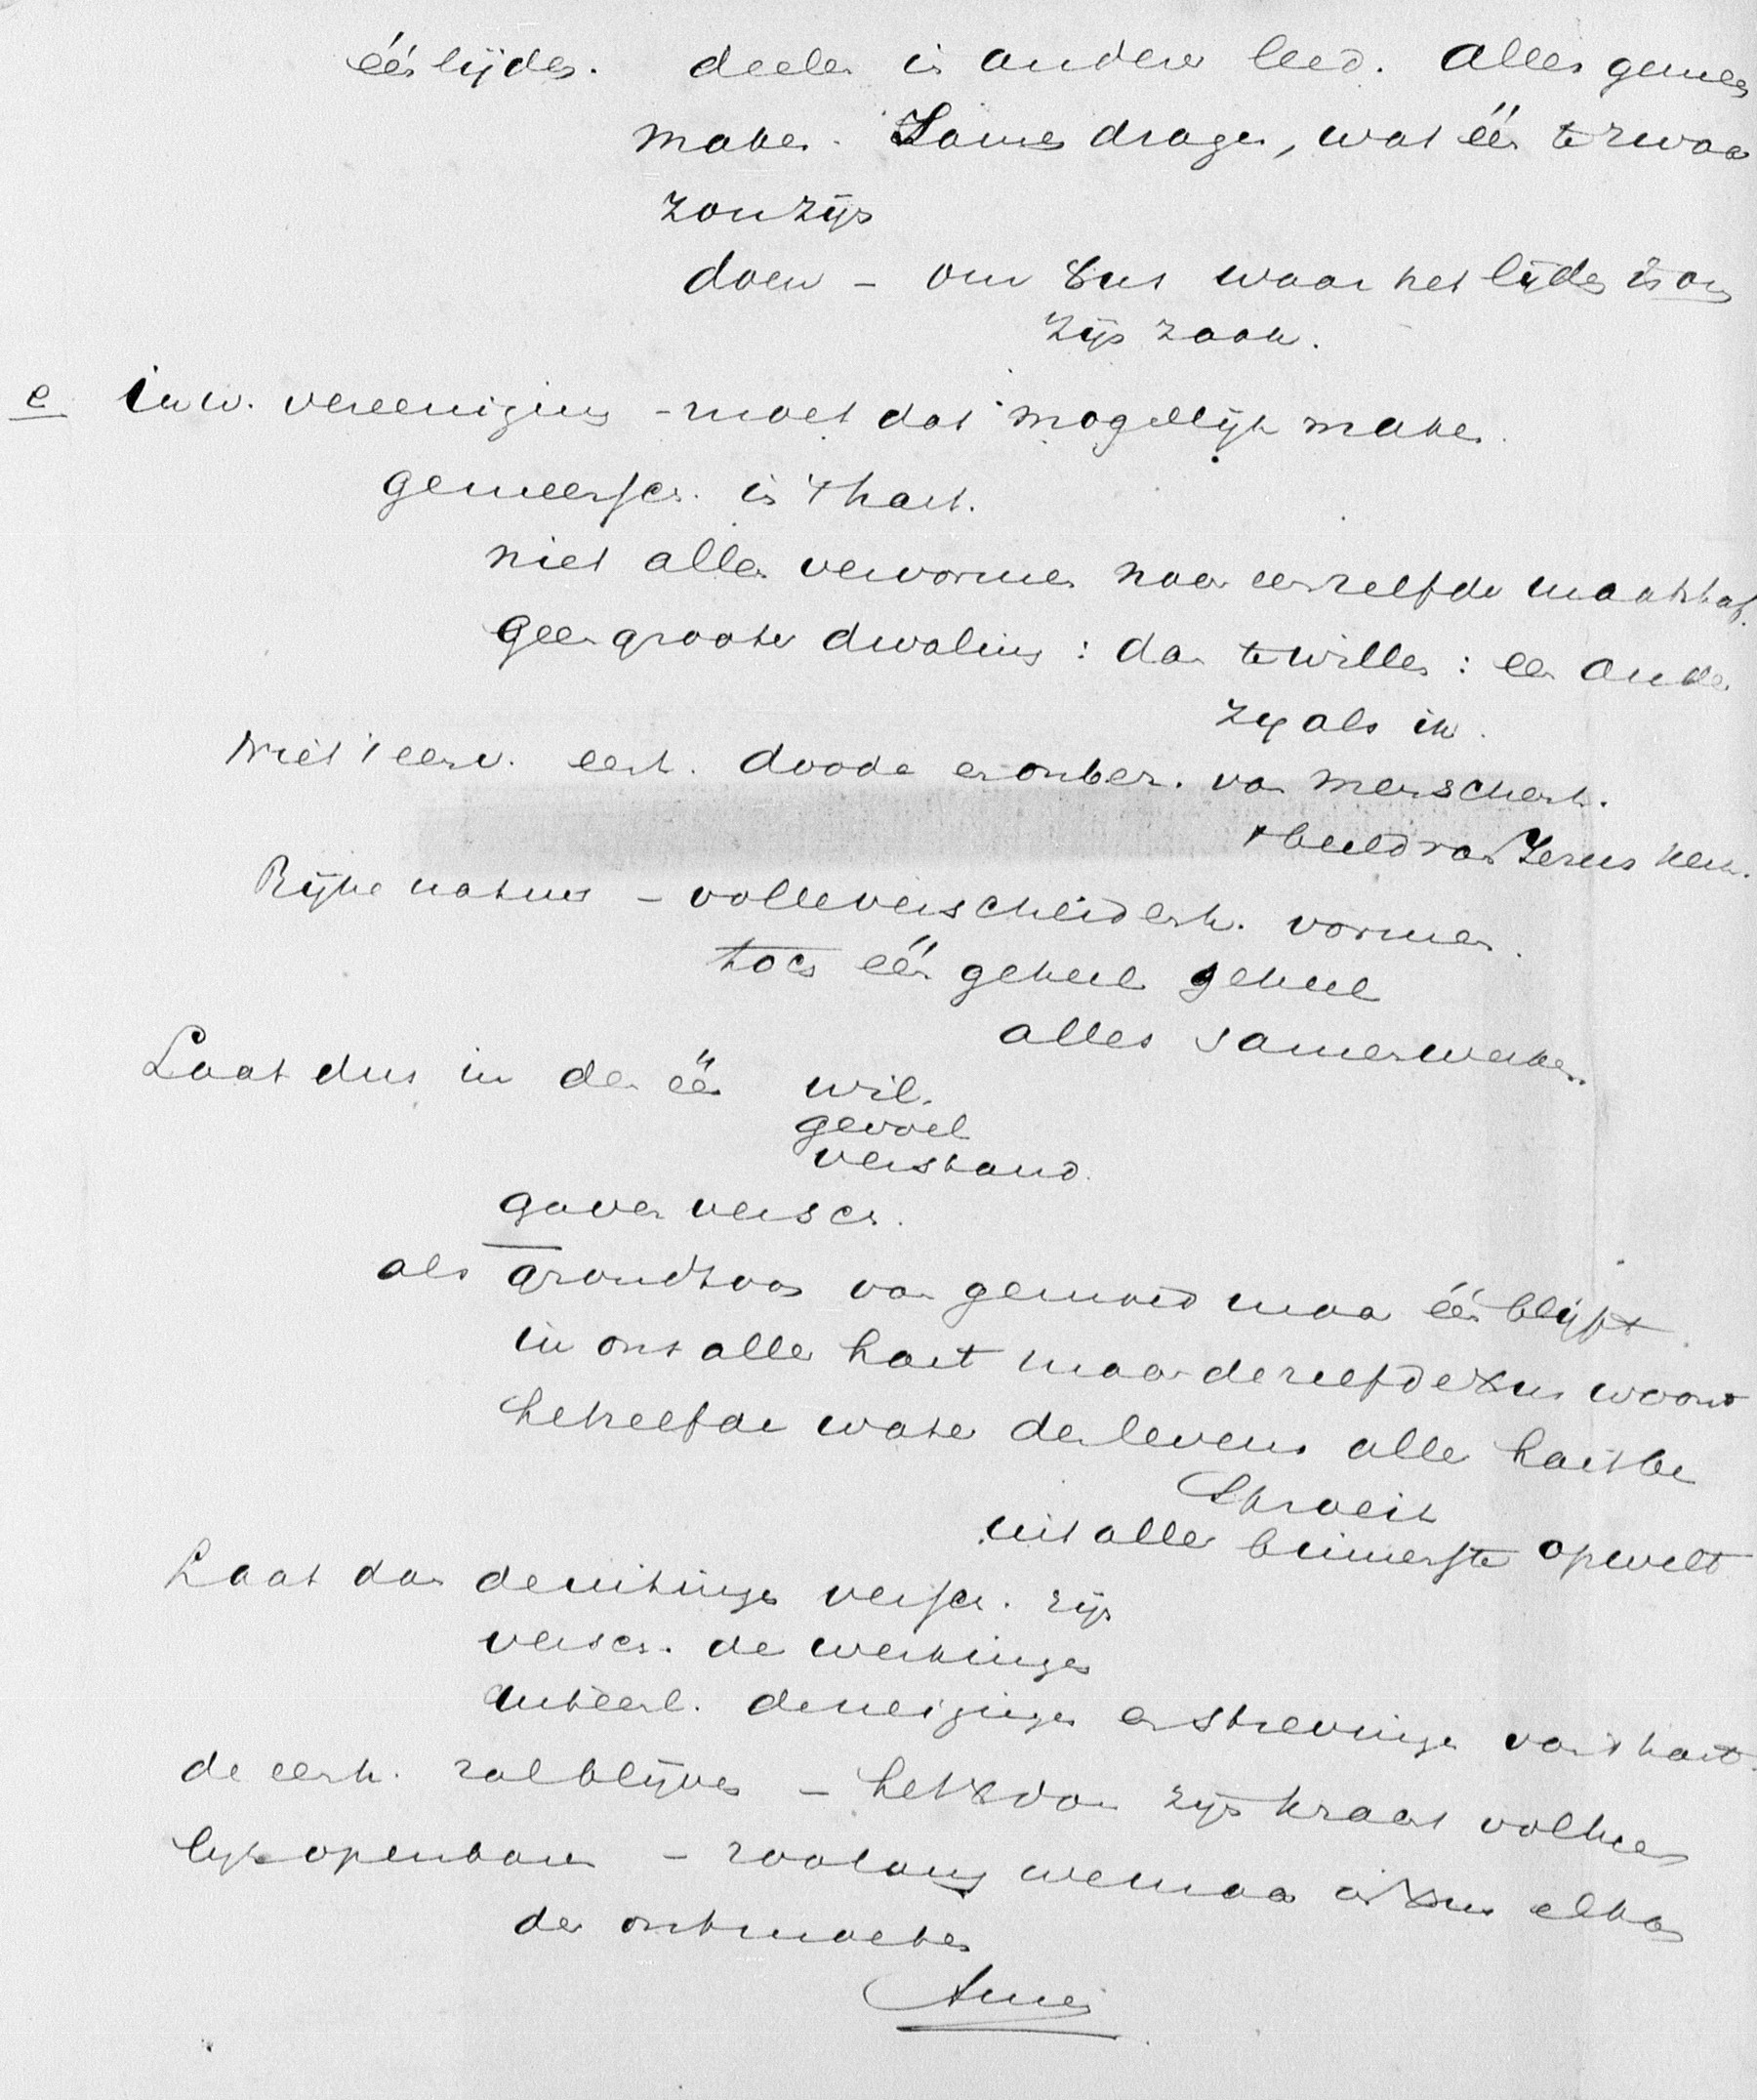 één lijden. deelen in anders leed. Alles gemeen
maken. Samen dragen, wat één te zwaar
zou zijn
doen – om Xus waar het lijden is om
zijn zaak.
e inw. vereeniging – moet dat mogelijk maken.
gemeensch. in 't hart.
niet allen vervormen naar eenzelfde maatstaf.
geen grooter dwaling: dan te willen: een ander
zij als ik.
Niet 't eenv. eenh. doode en onbez. van menschenh.
't beeld van Jezus kerk.
Rijke natuur – volle verscheidenh. vormen.
toch één geheel geheel
alles samenwerken.
Laat dus in den één wil.
gevoel
verstand.
gaven versch.
als grondtoon van gemoed maar één blijft
in ons aller hart maar dezelfde Xus woont
hetzelfde water des levens aller hart be
sproeit
uit aller binnenste opwelt
Laat dan de uitingen versch. zijn
versch. de werkingen
uiteenl. de neigingen en strevingen van 't hart.
de eenh. zal blijven – het X van zijn kracht volkomen
lijk openbaren – zoolang we maar in Xus elkan
der ontmoeten
Amen